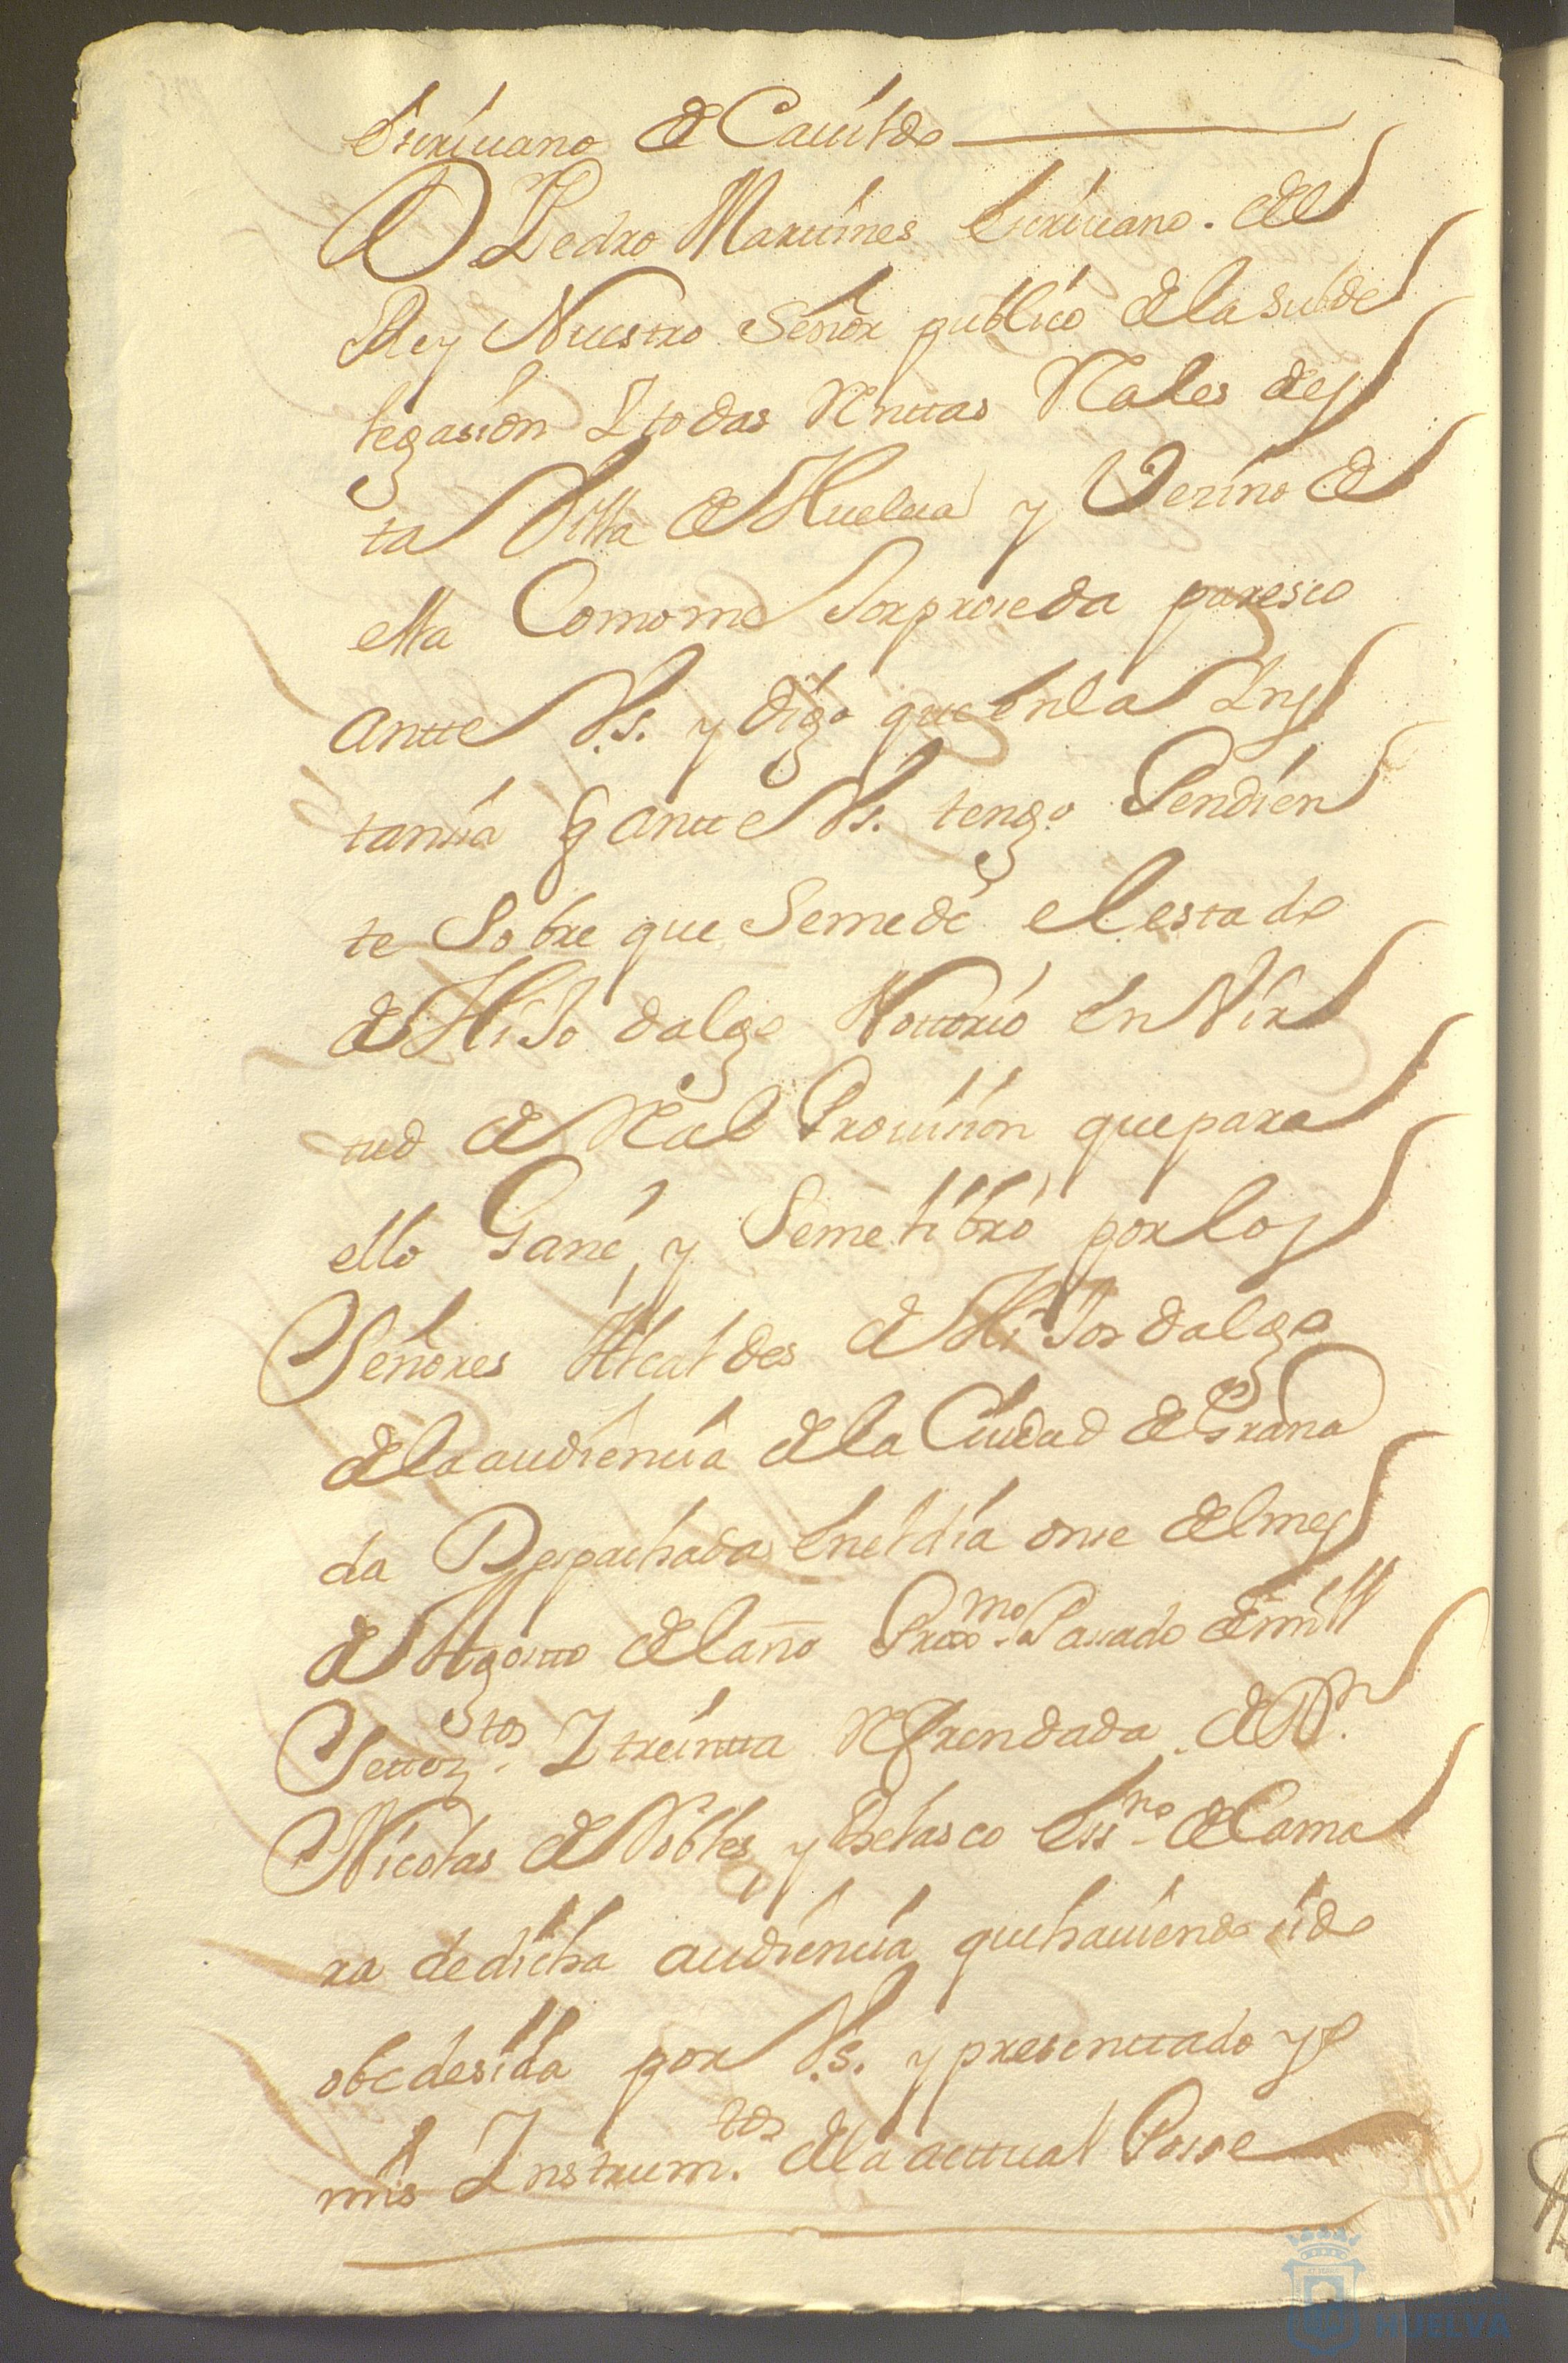 Escriuano de Cauildo
Dn Pedro Martines Escriuano. del
Rey Nuestro Señor publico de la subde
legasion Y todas Renttas Rales des
ta Villa de Huelua y Vesino de
ella Como mas Sorproseda paresco
antte V.s. y digo que en la Ins
tansia q antte Vs. tengo Pendien
te Sobre que Se me dé el estado
de HiJo dalgo Nottorio en Vir
tud de Real Prouision que para
ello Gané, y Se me libró por los
Señores Alcaldes de HiJosdalgo
de la audiensia de la Ciudad de Grana
da Despachada en el dia onse del mes
de Agostto del año Proxmo. Pasado de mill
Settoztos. Y treintta Refrendada. de Dn.
Nicolas de Robles, y Belasco Essno. de Cama
ra de dicha audiensia que hauiendo sido
obedesida por V.s. y presenttado yo
mis Instrumtos. de la acttual Posse
HUELVA